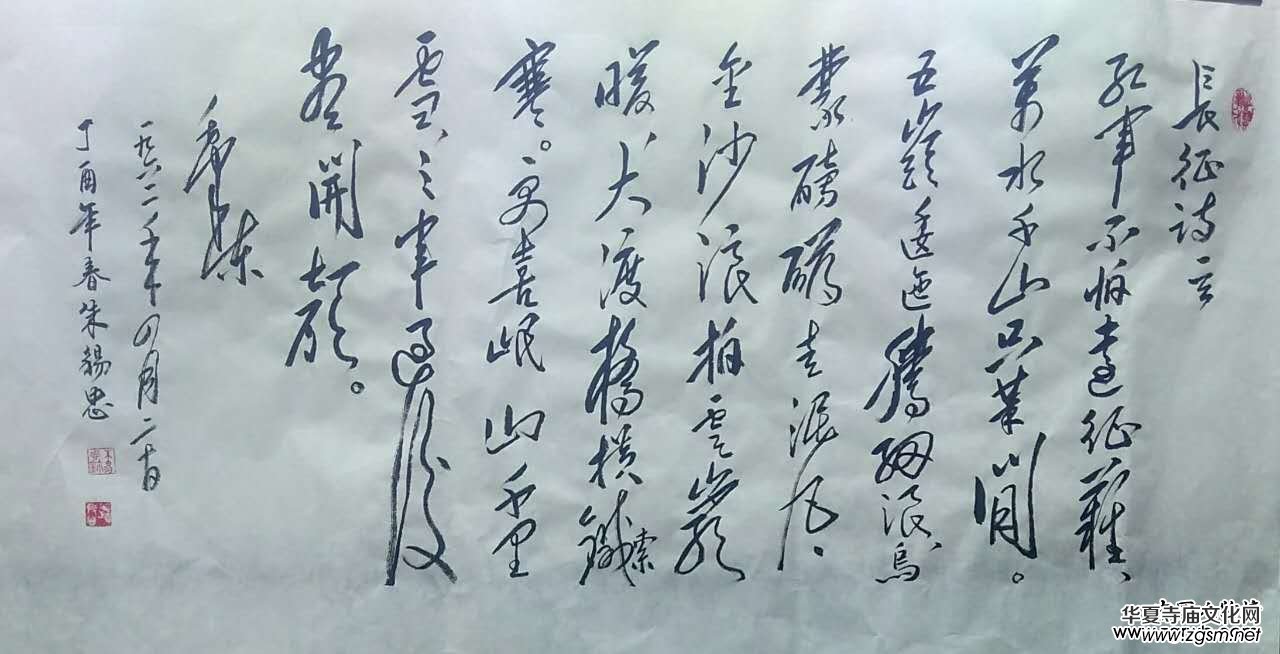 長征詩一首
紅軍不怕遠征難、
萬水千山只等閒。
五嶺逶迤騰細浪、烏
蒙磅礴走泥丸、
金沙浪拍雲崖
暖、大渡橋橫鐵索
寒。更喜岷山千里
雪、三軍過後
盡開顏。
毛澤東
一九六二年四月二十日
丁酉年春朱錫忠
华夏寺庙文化网
www.zgsm.net